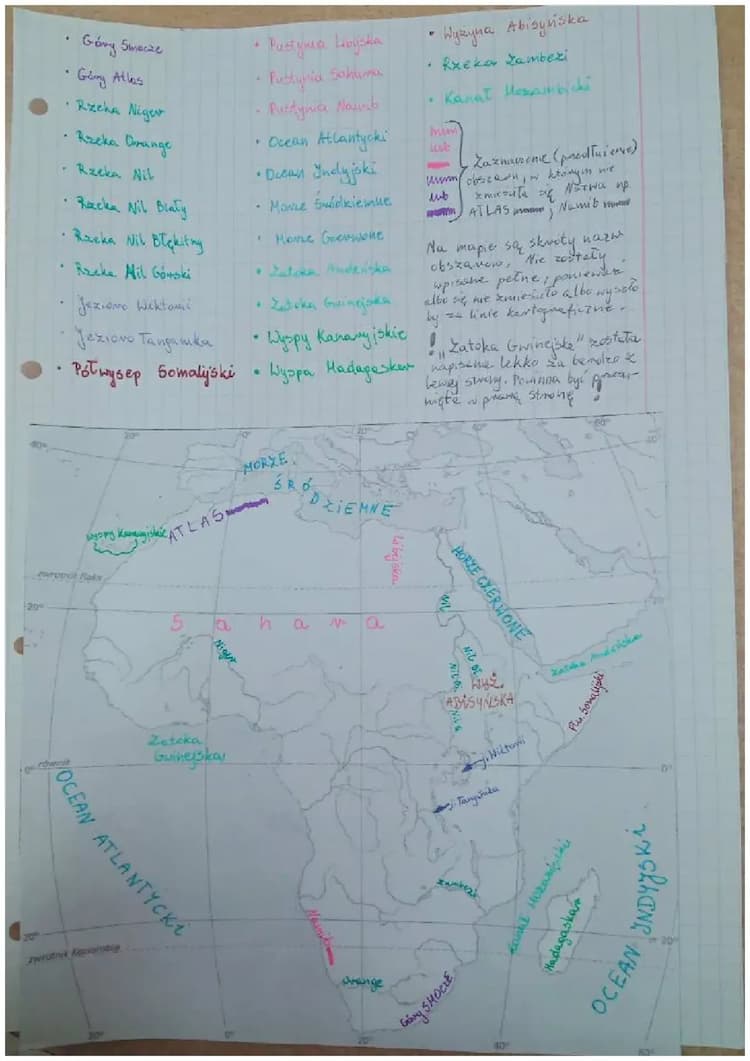 • Góry Smocze
• Góry Atlas
• Rzeka Niger
• Rzeka Orange
• Rzeka Nil
• Rzeka Nil Biały
• Rzeka Nil Błękitny
• Rzeka Nil Górski
• Jezioro Wiktorii
• Jezioro Tanganika
• Półwysep Somalijski
• Pustynia Libijska
• Pustynia Sahara
• Pustynia Namib
• Ocean Atlantycki
• Ocean Indyjski
• Morze Śródziemne
• Morze Czerwone
• Zatoka Adeńska
• Zatoka Gwinejska
• Wyspy Kanaryjskie
• Wyspa Madagaskar
• Wyżyna Abisyńska
• Rzeka Zambezi
• Kanał Mozambicki
lub
lub
Zaznaczenie (przedłużenie)
obszaru, w którym nie
zmieściła się Nazwa np.
ATLAS, Namib
Na mapie są skróty nazw
obszarów. Nie zostały
wpisane pełne, ponieważ
albo się nie zmieściło albo wyszło
by za linie kartograficzne.
! "Zatoka Gwinejska" została
napisana lekko za bardzo z
lewej strony. Powinna być przesu-
nięta w prawą stronę !
40°
20°
0°
20°
60°
40°
MORZE
ŚRÓ
DZIEMNE
ATLAS
Wyspy Kanaryjskie
Libijska
zwrotnik Raka
MORZE CZERWONE
Nil
20°
Sahara
Niger
Zatoka Adeńska
Nil Bł.
Nil Bi.
Nil G.
WYŻ.
ABISYŃSKA
Pw. Somalijski
Zatoka
Gwinejska
równik
0°
0°
j. Wiktorii
j. Tanganika
OCEAN ATLANTYCKI
OCEAN INDYJSKI
Zambezi
Kanał Mozambicki
Madagaskar
Namib
20°
20°
zwrotnik Koziorożca
Orange
Góry SMOCZE
20°
0°
20°
40°
60°